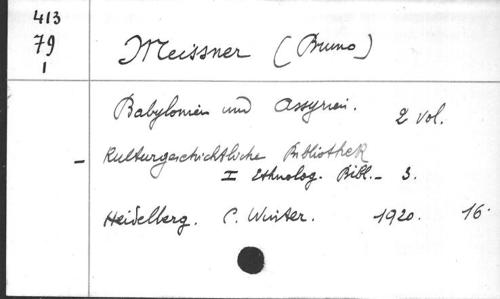 413
79
1
Meissner (Bruno)
Babylonien und Assyrien. 2 vol.
- Kulturgeschichtliche Bibliothek
I Ethnolog. Bibl. - 3.
Heidelberg. C. Winter. 1920. 16.